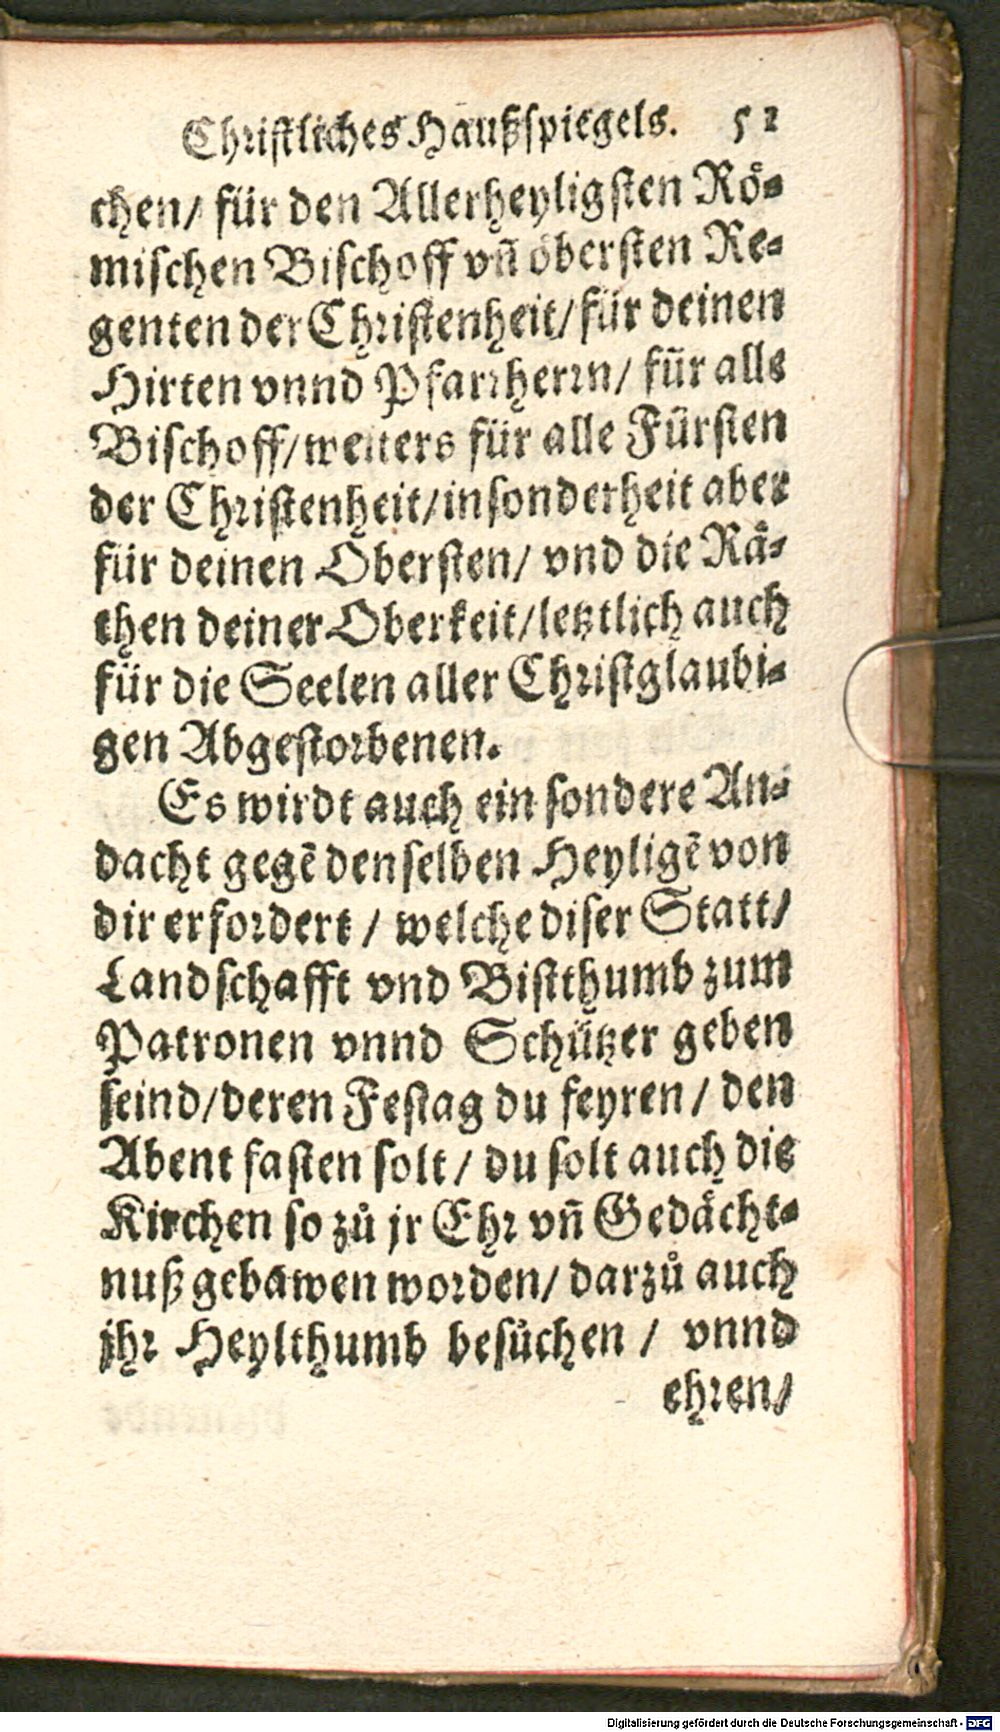 Christliches Haußspiegels. 51
chen/ für den Allerheyligsten Rö-
mischen Bischoff vñ öbersten Re-
genten der Christenheit/ für deinen
Hirten vnnd Pfarrherrn/ für alle
Bischoff/ weiters für alle Fürsten
der Christenheit/ insonderheit aber
für deinen Obersten/ vnd die Rä-
then deiner Oberkeit/ letztlich auch
für die Seelen aller Christglaubi-
gen Abgestorbenen.
Es wirdt auch ein sondere An-
dacht gegẽ denselben Heyligẽ von
dir erfordert / welche diser Statt/
Landschafft vnd Bistthumb zum
Patronen vnnd Schützer geben
seind/ deren Festag du feyren / den
Abent fasten solt / du solt auch die
Kirchen so zů jr Ehr vñ Gedächt-
nuß gebawen worden/ darzů auch
jhr Heylthumb besůchen / vnnd
ehren/
Digitalisierung gefördert durch die Deutsche Forschungsgemeinschaft - DFG